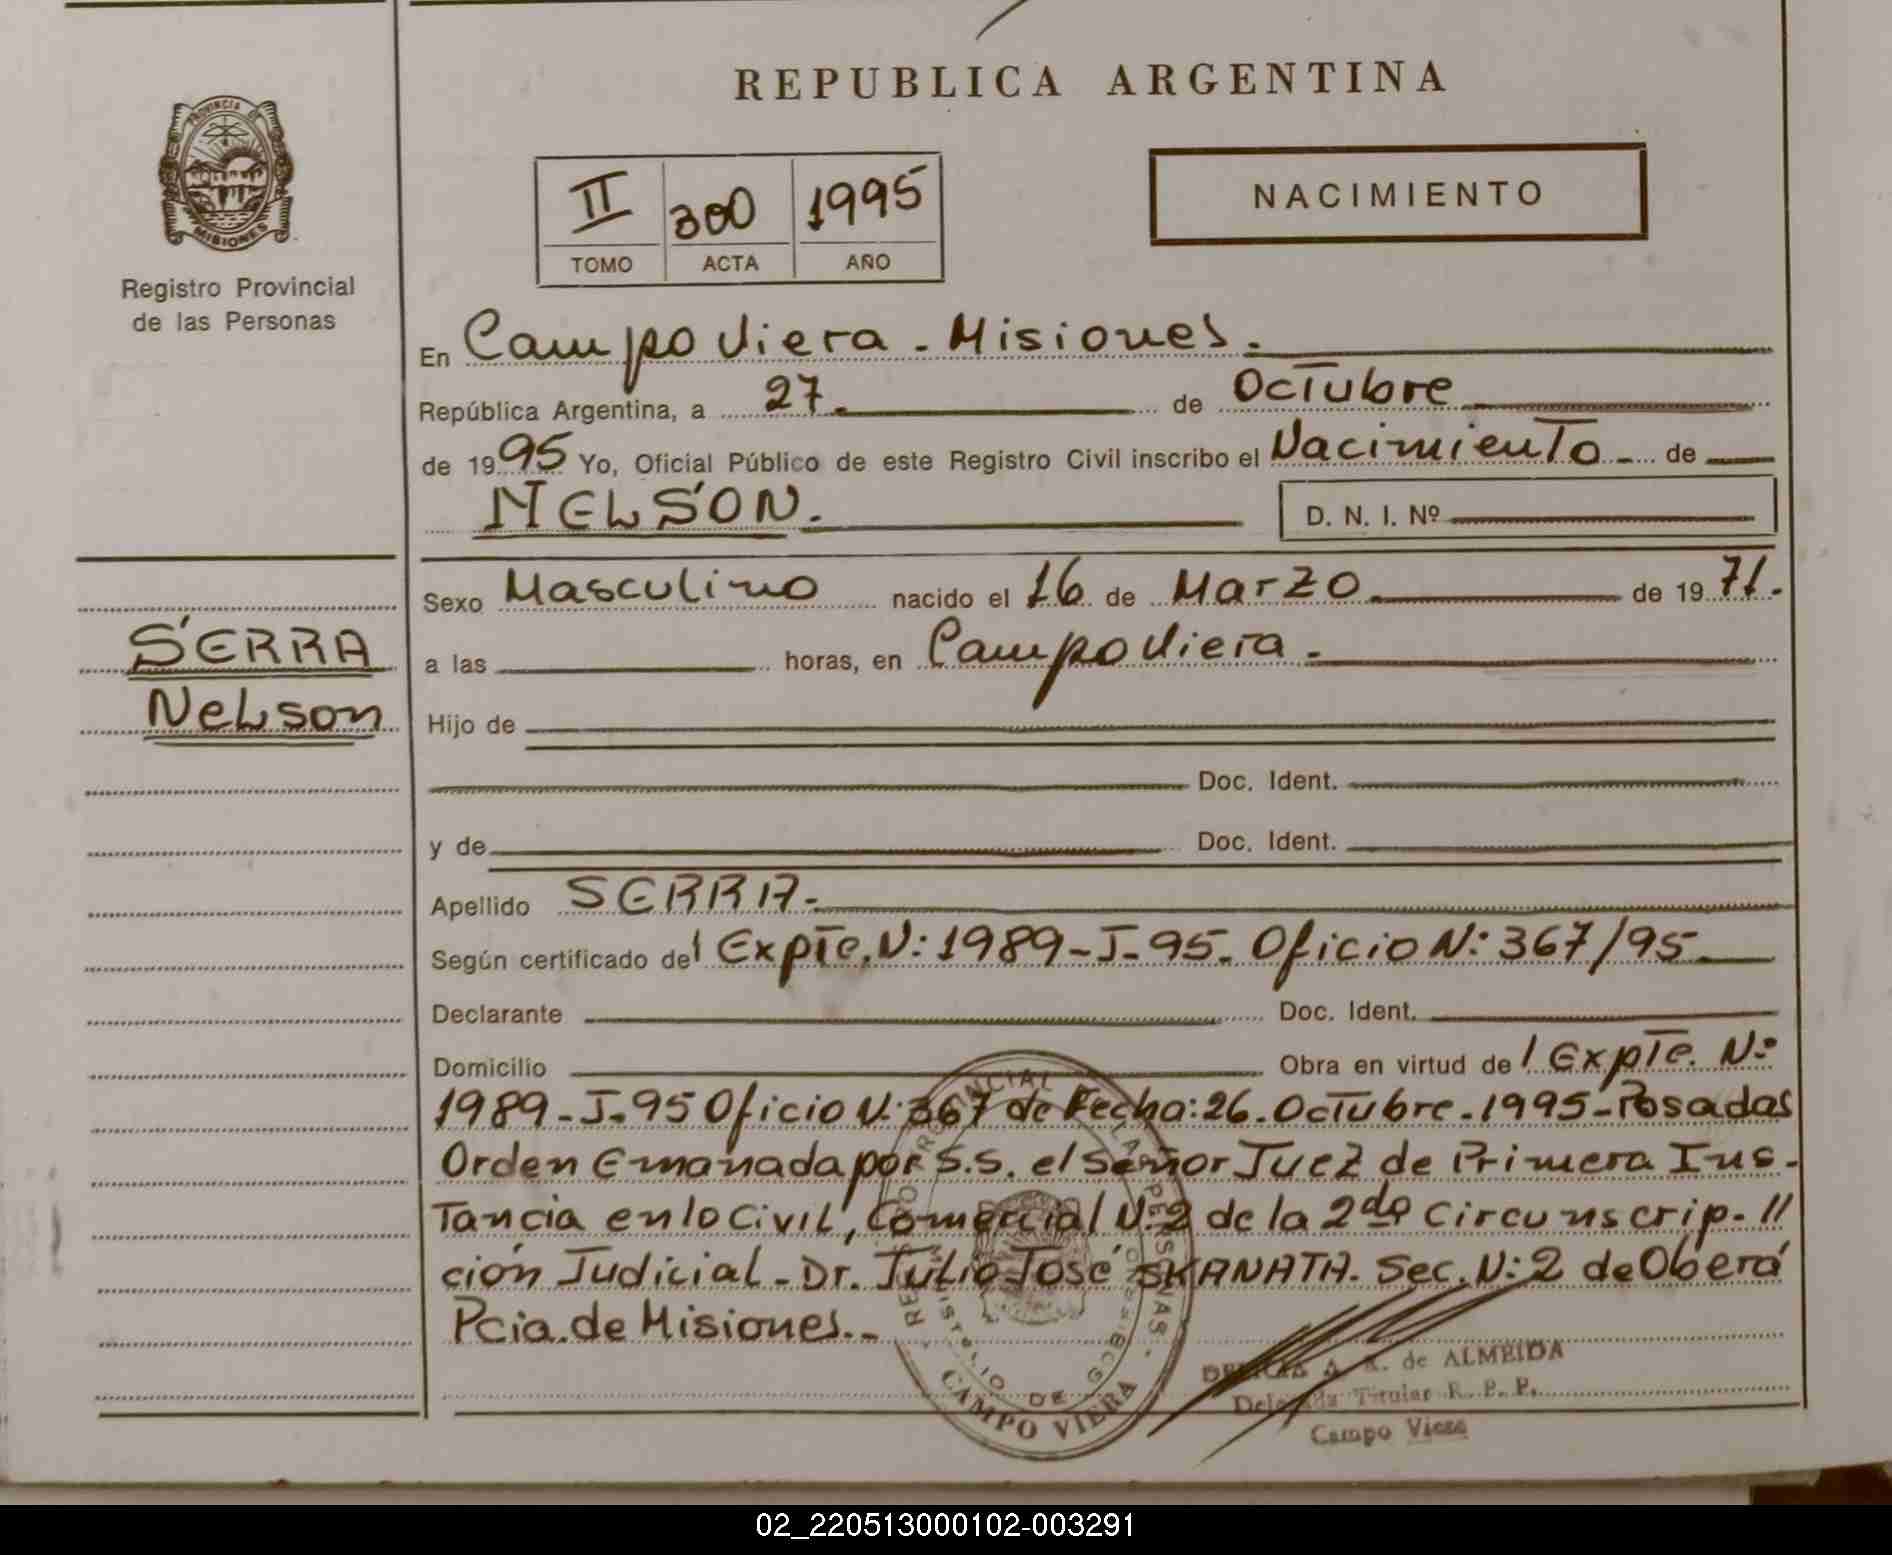 REPUBLICA ARGENTINA
PROVINCIA DE
MISIONES
Registro Provincial
de las Personas
II 300 1995
TOMO ACTA AÑO
NACIMIENTO
En Campo Viera - Misiones.
República Argentina, a 27 de Octubre
de 1995 Yo, Oficial Público de este Registro Civil inscribo el Nacimiento de
NELSON.
D. N. I. Nº
SERRA
Nelson
Sexo Masculino nacido el 16 de Marzo de 1971.
a las horas, en Campo Viera.
Hijo de
Doc. Ident.
y de Doc. Ident.
Apellido SERRA.
Según certificado del Expte. N: 1989-J-95. Oficio N: 367/95
Declarante Doc. Ident.
Domicilio Obra en virtud de / Expte. N:
1989-J-95 Oficio N: 367 de Fecha: 26. Octubre. 1995- Posadas
Orden Emanada por S.S. el señor Juez de Primera Ins-
tancia en lo Civil, Comercial N: 2 de la 2da Circunscrip- //
ción Judicial - Dr. Julio José SKANATA. Sec. N: 2 de Oberá
Pcia. de Misiones.-
CAMPO VIERA
A. R. de ALMEIDA
Delegada Titular R. P. P.
Campo Viera
02_220513000102-003291